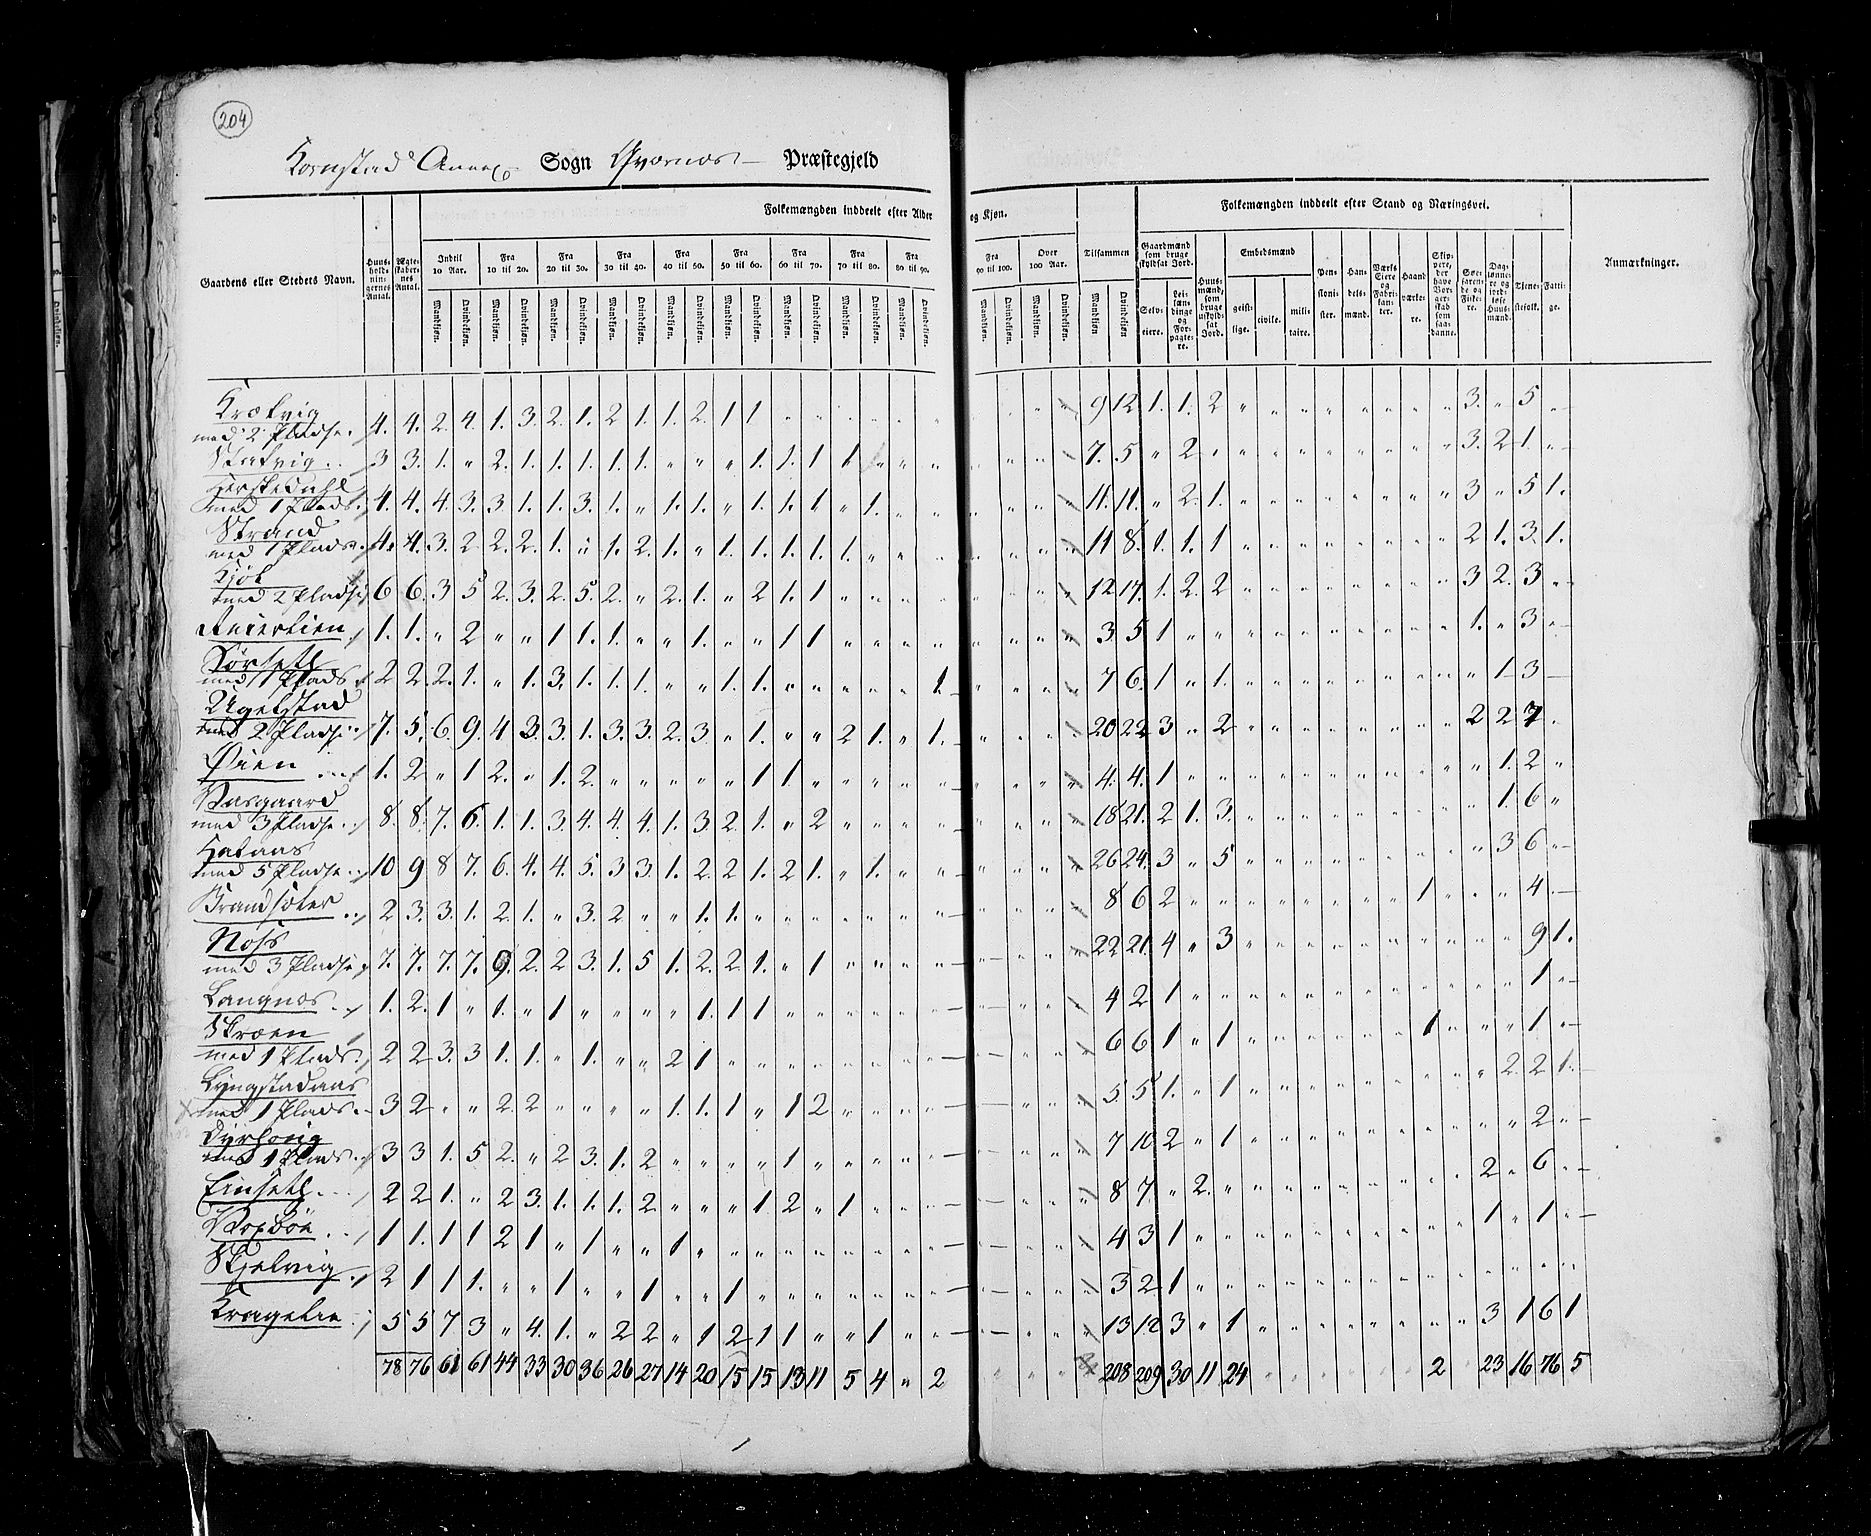 204
Kornstad Annex Sogn Qvernes Præstegjeld
Folkemængden inddeelt efter Alder og Kjøn.
Folkemængden inddeelt efter Stand og Næringsvei.
Gaardens eller Stedets Navn.
Huusholdningernes Antal.
Ægteskabernes Antal.
Indtil 10 Aar.
Fra 10 til 20.
Fra 20 til 30.
Fra 30 til 40.
Fra 40 til 50.
Fra 50 til 60.
Fra 60 til 70.
Fra 70 til 80.
Fra 80 til 90.
Fra 90 til 100.
Over 100 Aar.
Tilsammen
Mandkjøn. Qvindekjøn.
Gaardmænd som bruge skyldsat Jord.
Selveiere.
Leilændinge og Forpagtere.
Huusmænd, som bruge uskyldsat Jord.
Embedsmænd
geistlige. civile. militaire.
Pensionister.
Handelsmænd.
Værks Eiere og Fabrikanter.
Haandværkere.
Skippere, der have Borgerskab som saadanne.
Søefarende og Fiskere.
Daglønnere og jordløse Huusmænd.
Tjenestefolk.
Fattige.
Anmærkninger.
Krækvig
med 2 Pladse 4. 4. 2. 4. 1. 3. 2. 1. 2 1. 1. 2. 1 1 " " " " " " " " " " 9 12 1. 1. 2 " " " " " " " " 3. " 5 "
Statvig 3 3. 1. " 2. 1. 1. 1. 1. 1. " " " 1. 1. 1 1 " " " " " " " 7. 5 " 2 " " " " " " " " " 3. 2 1. "
Herskedahl
med 1 Plads 4. 4. 4. 3. 3 1. 1. 3. 1. " 1. 1. " 1. 1. 1 " 1. " " " " " " 11. 11. " 2. 1. " " " " " " " " 3 " 5 1.
Strand
med 1 Plads 4. 4. 3. 2 2. 2. 1. " 1. 2. 1. " 1. 1. 1. 1. 1. " " " " " " " 11 8. 1. 1. 1 " " " " " " " " 2 1. 3. 1.
Kjøl
med 2 Pladse 6 6. 3 5 2. 3. 2. 5. 2. " 2. 1. " 2 1. 1 " " " " " " " " 12 17. 1. 2. 2 " " " " " " " " 3 2. 3 "
1. 1. " 2 " " 1 1. 1. " " 1. " " 1 1 " " " " " " " " 3 5 1 " " " " " " " " " " 1. " 3 "
Sørseth
med 1 Plads 2 2. 2. 1. " 1. 3. 1. 1. 1. " " 1. 1. " " " " " 1. " " " " 7 6. 1 " 1. " " " " " " " " " 1 3
Ugelstad
med 2 Pladse 7. 5. 6. 9. 4 3. 3. 1. 3. 3. 2. 3. " 1. " " 2 1. " 1. " " " " 20 22 3 " 2 " " " " " " " " 2 2 7 "
Øien 1. 2. " 1 2. " 1. 2. " " " " " 1 1 " " " " " " " " " 4. 4. 1 " " " " " " " " " " " 1. 2 "
Naasgaard
med 3 Pladse 8. 8. 7. 6. 1. 1. 3. 4. 4. 4. 1. 3. 2. 1. " 2 " " " " " " " " 18 21. 2 1. 3. " " " " " " " " " 1. 6 "
Hataas
med 5 Pladse 10 9 8 7. 6. 4. 4. 5. 3 3. 1. 2. 2 1. 2 1. " 1. " " " " " " 26 24. 3 " 5 " " " " " " " " " 3 6 "
Brandsæter 2 3. 3. 1. 2. 1. " 3. 2 " " 1. 1. " " " " " " " " " " " 8 6 2 " " " " " " " " 1 " " " 4.
Noss
med 3 Pladse 7. 7. 7. 7. 9. 2. 2 3. 1. 5 1. 2. 2. 1. " 1 " " " " " " " " 22 21. 4 " 3 " " " " " " " " " " 9 1.
Langnæs 1. 2. 1 " 1. " 1 " " " " 1. 1 1 " " " " " " " " " " 4 2 1 " " " " " " " " " " " " 1 "
Skroen
med 1 Plads 2 2 3. 3 1. 1. " 1. " " 2 1 " " " " " " " " " " " " 6 6 1 " 1 " " " " " " 1 " " " 1 "
Lyngstadaas
med 1 Plads 3 2 " " 2. 2 " " " " 1. 1. 1 " 1 2 " " " " " " " " 5. 5 1. " 1 " " " " " " " " " 2 2 1.
Dyrhoug
med 1 Plads 3 3 1. 5 2. " 2 3. 1. 2 " " " " 1 " " " " " " " " " 7 10 2 " 1 " " " " " " " " " " 2 "
Einseth 2 2 1. " 2 3. 1. 1. 1. 2 " " " 1 2 " 1 " " " " " " " 8 7. " 2. " " " " " " " " " 2 " 6 "
1 1. 1 1 2 1 " 1 " " 1 " " " " " " " " " " " " " 4 3 1 " " " " " " " " " " 1 " 1 "
Skjelvig 2 1 1 1. " " 1 " " 1 " " 1 " " " " " " " " " " " 3 2 1 " " " " " " " " " " " " " "
Kragelie 5 5 7 3 " 4. 1. " 2 2 " 1 2 1 1 " " 1 " " " " " " 13 12 3 " 1 " " " " " " " " 3 1 6 1
78 76 61 61 44 33 30 36 26 27 14 20 15 15 13 11 5 4 " 2 " " " " 208 209 30 11 24 " " " " " " 2 " 23 16 76 5